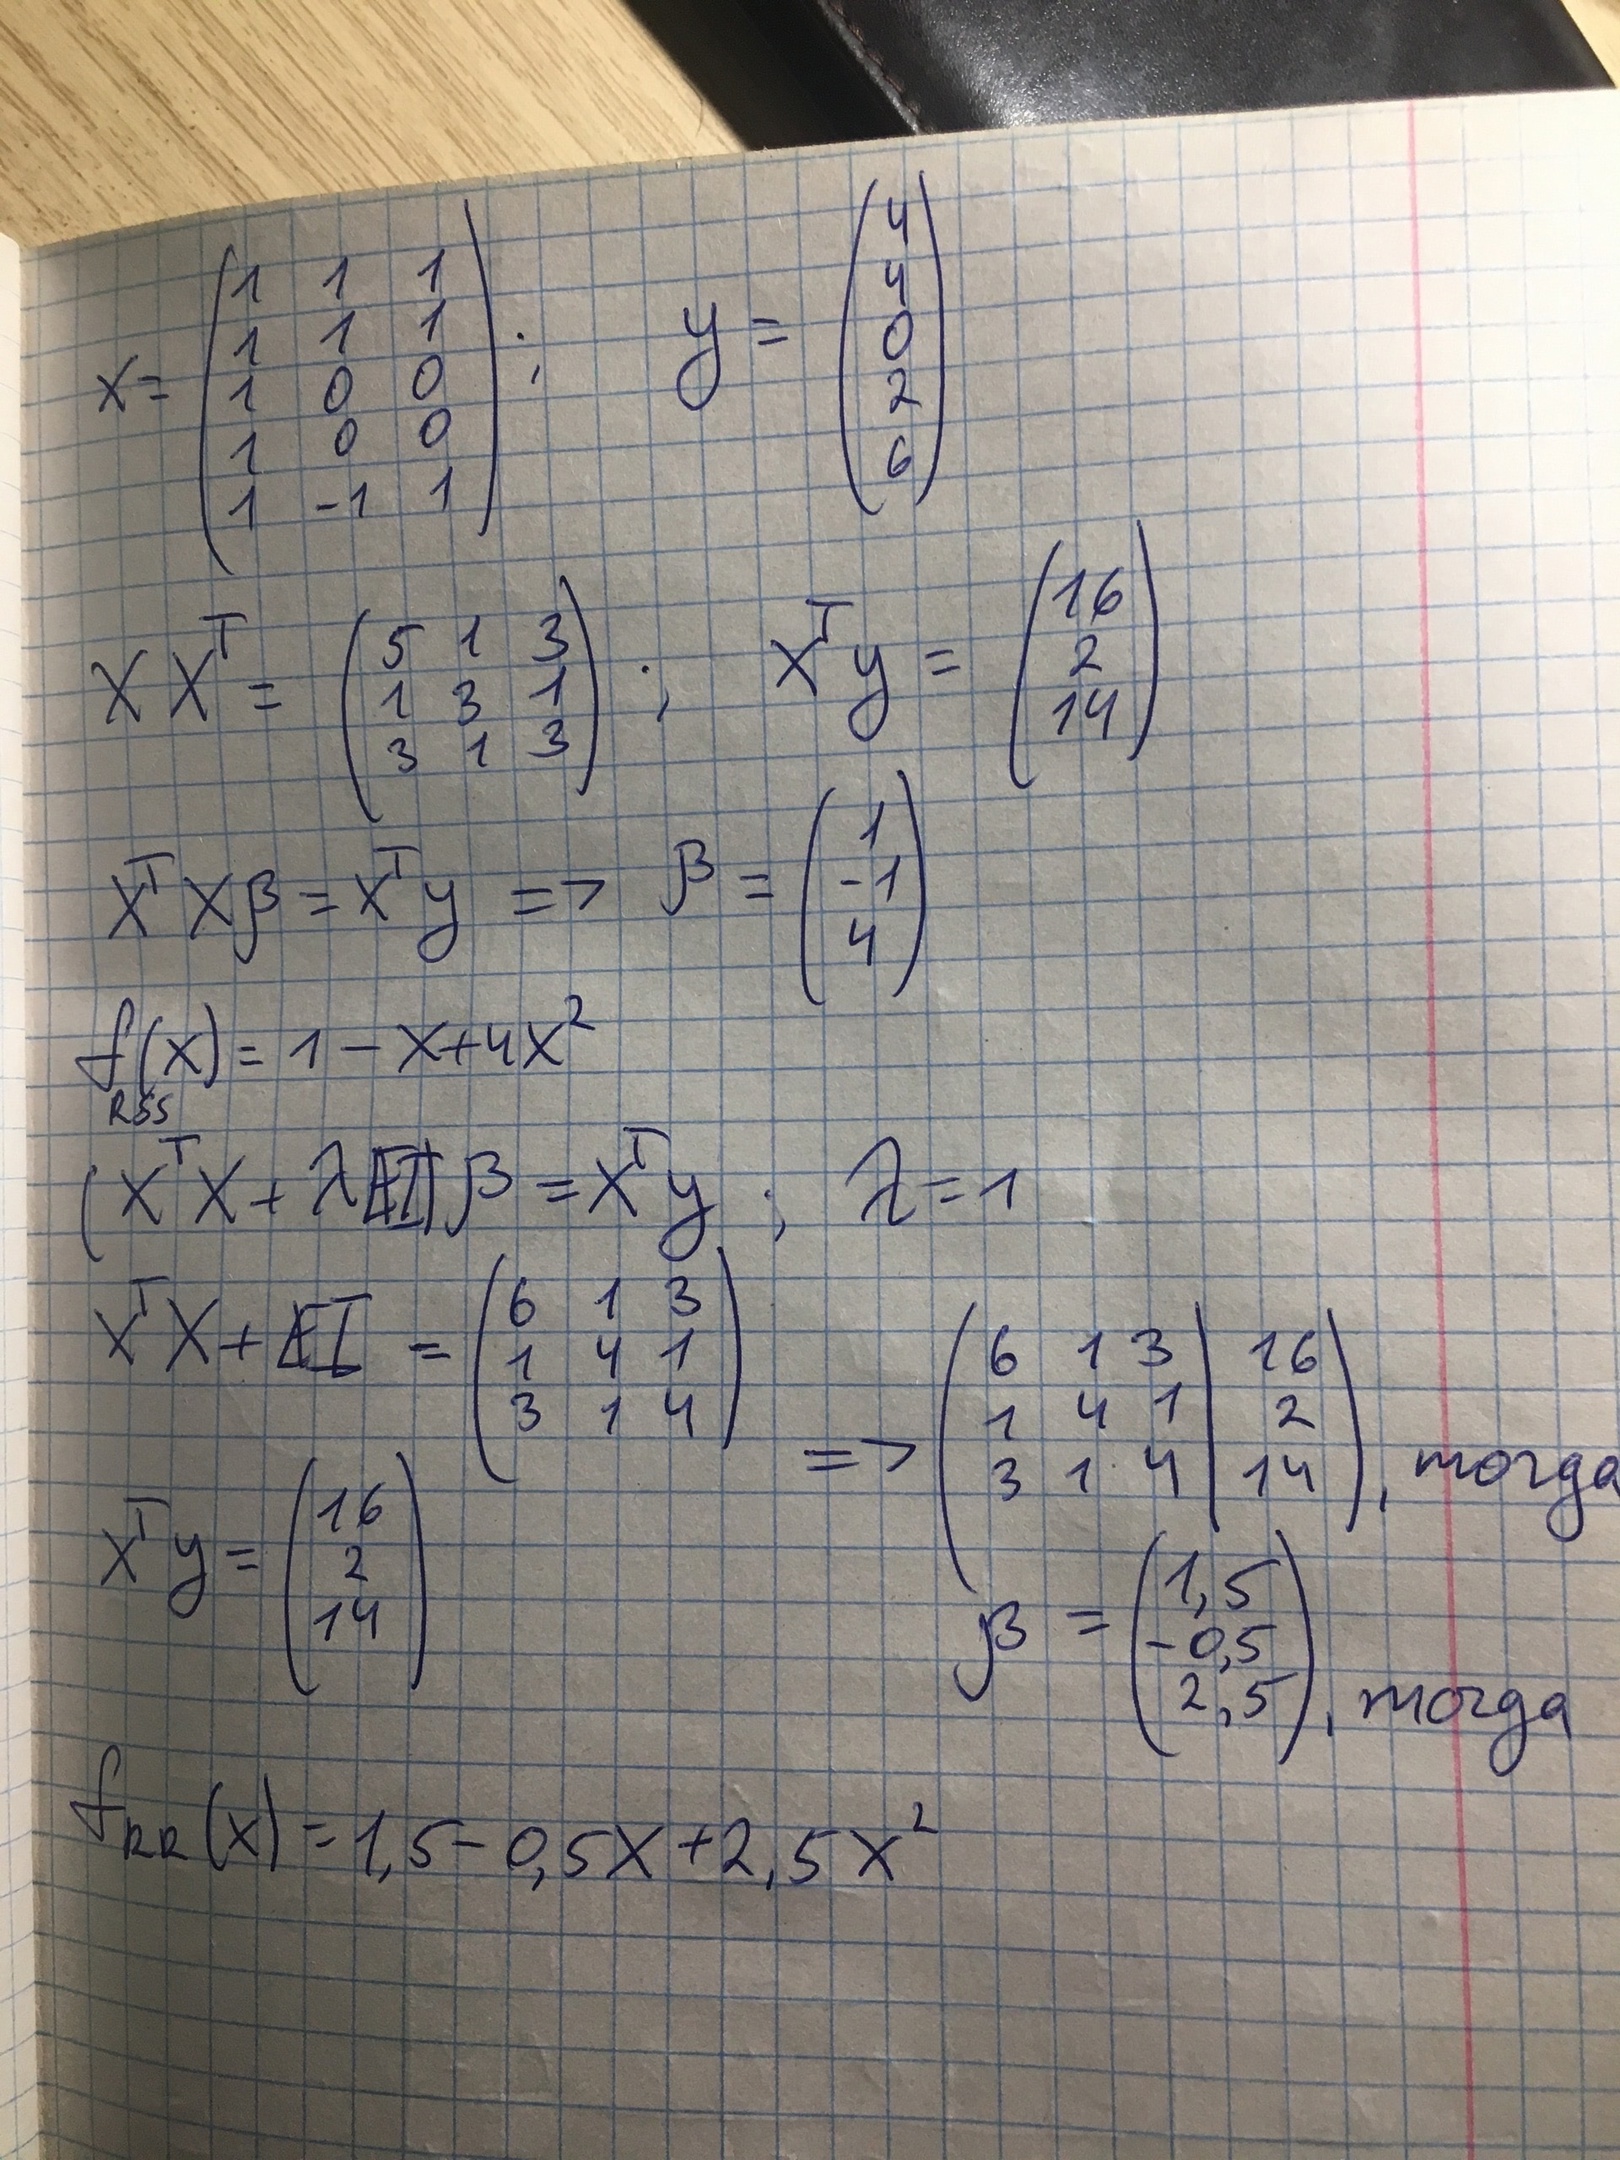 x = ( 1 1 1 ; 1 1 1 ; 1 0 0 ; 1 0 0 ; 1 -1 1 ) ; y = ( 4 ; 4 ; 0 ; 2 ; 6 )
X X^T = ( 5 1 3 ; 1 3 1 ; 3 1 3 ) ; X^T y = ( 16 ; 2 ; 14 )
X^T X β = X^T y => β = ( 1 ; -1 ; 4 )
f_RSS(x) = 1 - x + 4x^2
( X^T X + λ I ) β = X^T y ; λ = 1
X^T X + I = ( 6 1 3 ; 1 4 1 ; 3 1 4 )
X^T y = ( 16 ; 2 ; 14 )
=> ( 6 1 3 | 16 ; 1 4 1 | 2 ; 3 1 4 | 14 ), тогда
β = ( 1,5 ; -0,5 ; 2,5 ), тогда
f_RR(x) = 1,5 - 0,5x + 2,5x^2